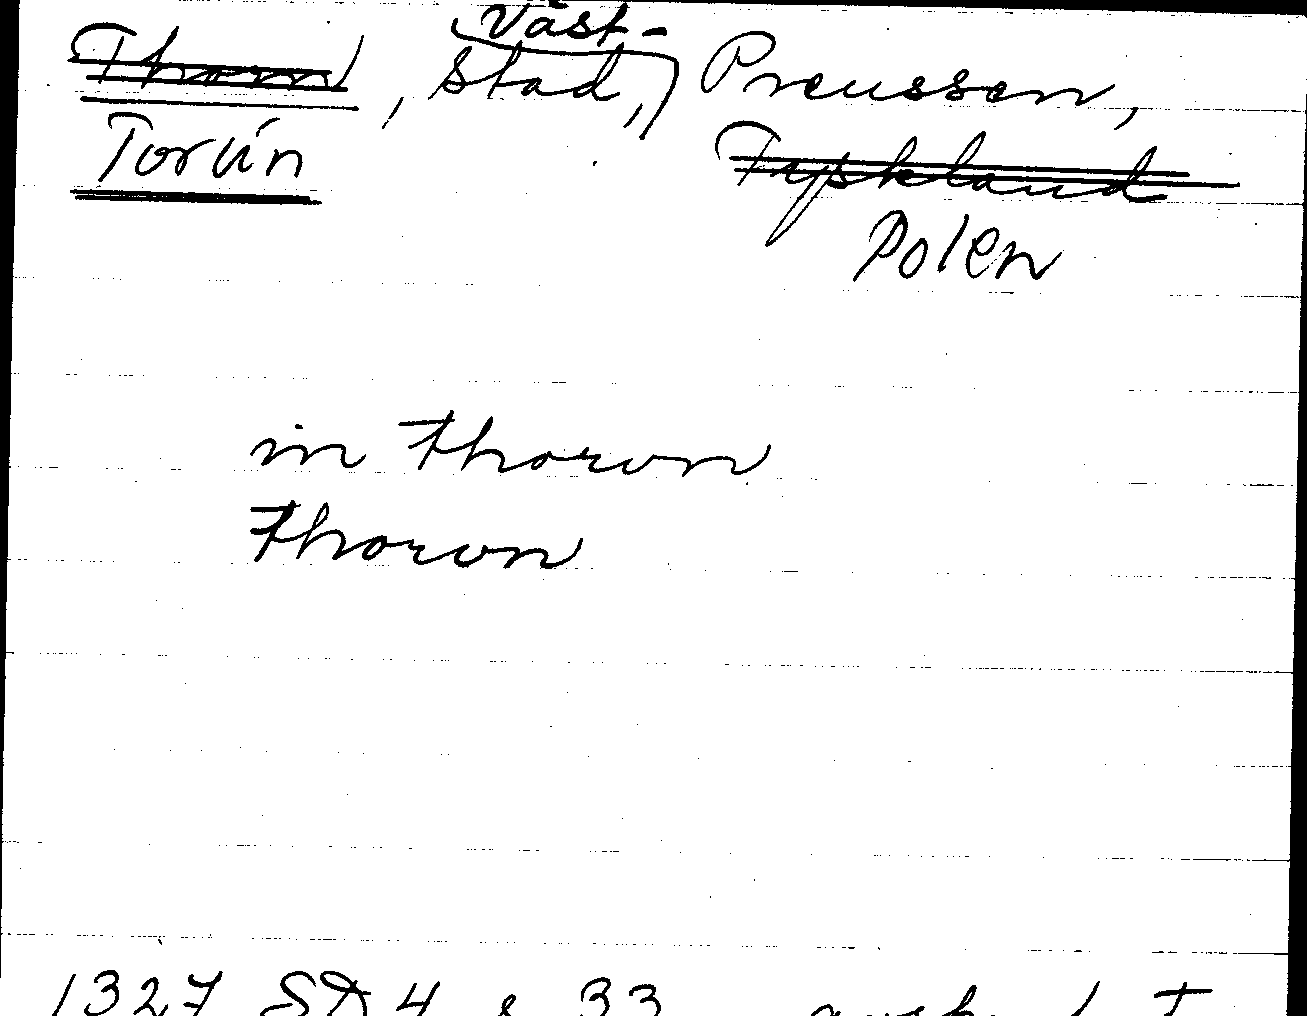 Väst-
Thorn, stad, Preussen,
Toruń Tyskland
Polen
in Thorvn
Thorvn
1327 SD 4 s 33